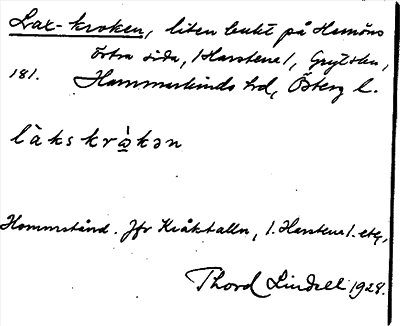 Lax-kroken, liten bukt på Hemöns
östra sida, /Harstena/, Gryts skn,
181. Hammarkinds hd, Österg l.
làkskrò̱kən
Hommstånd. Jfr Kråktallen, /. Harstena/. etc,
Thord Lindell 1928.